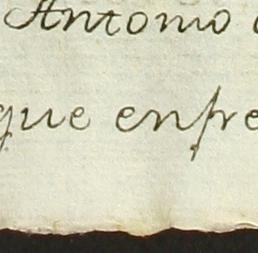 Antonio
que enfre